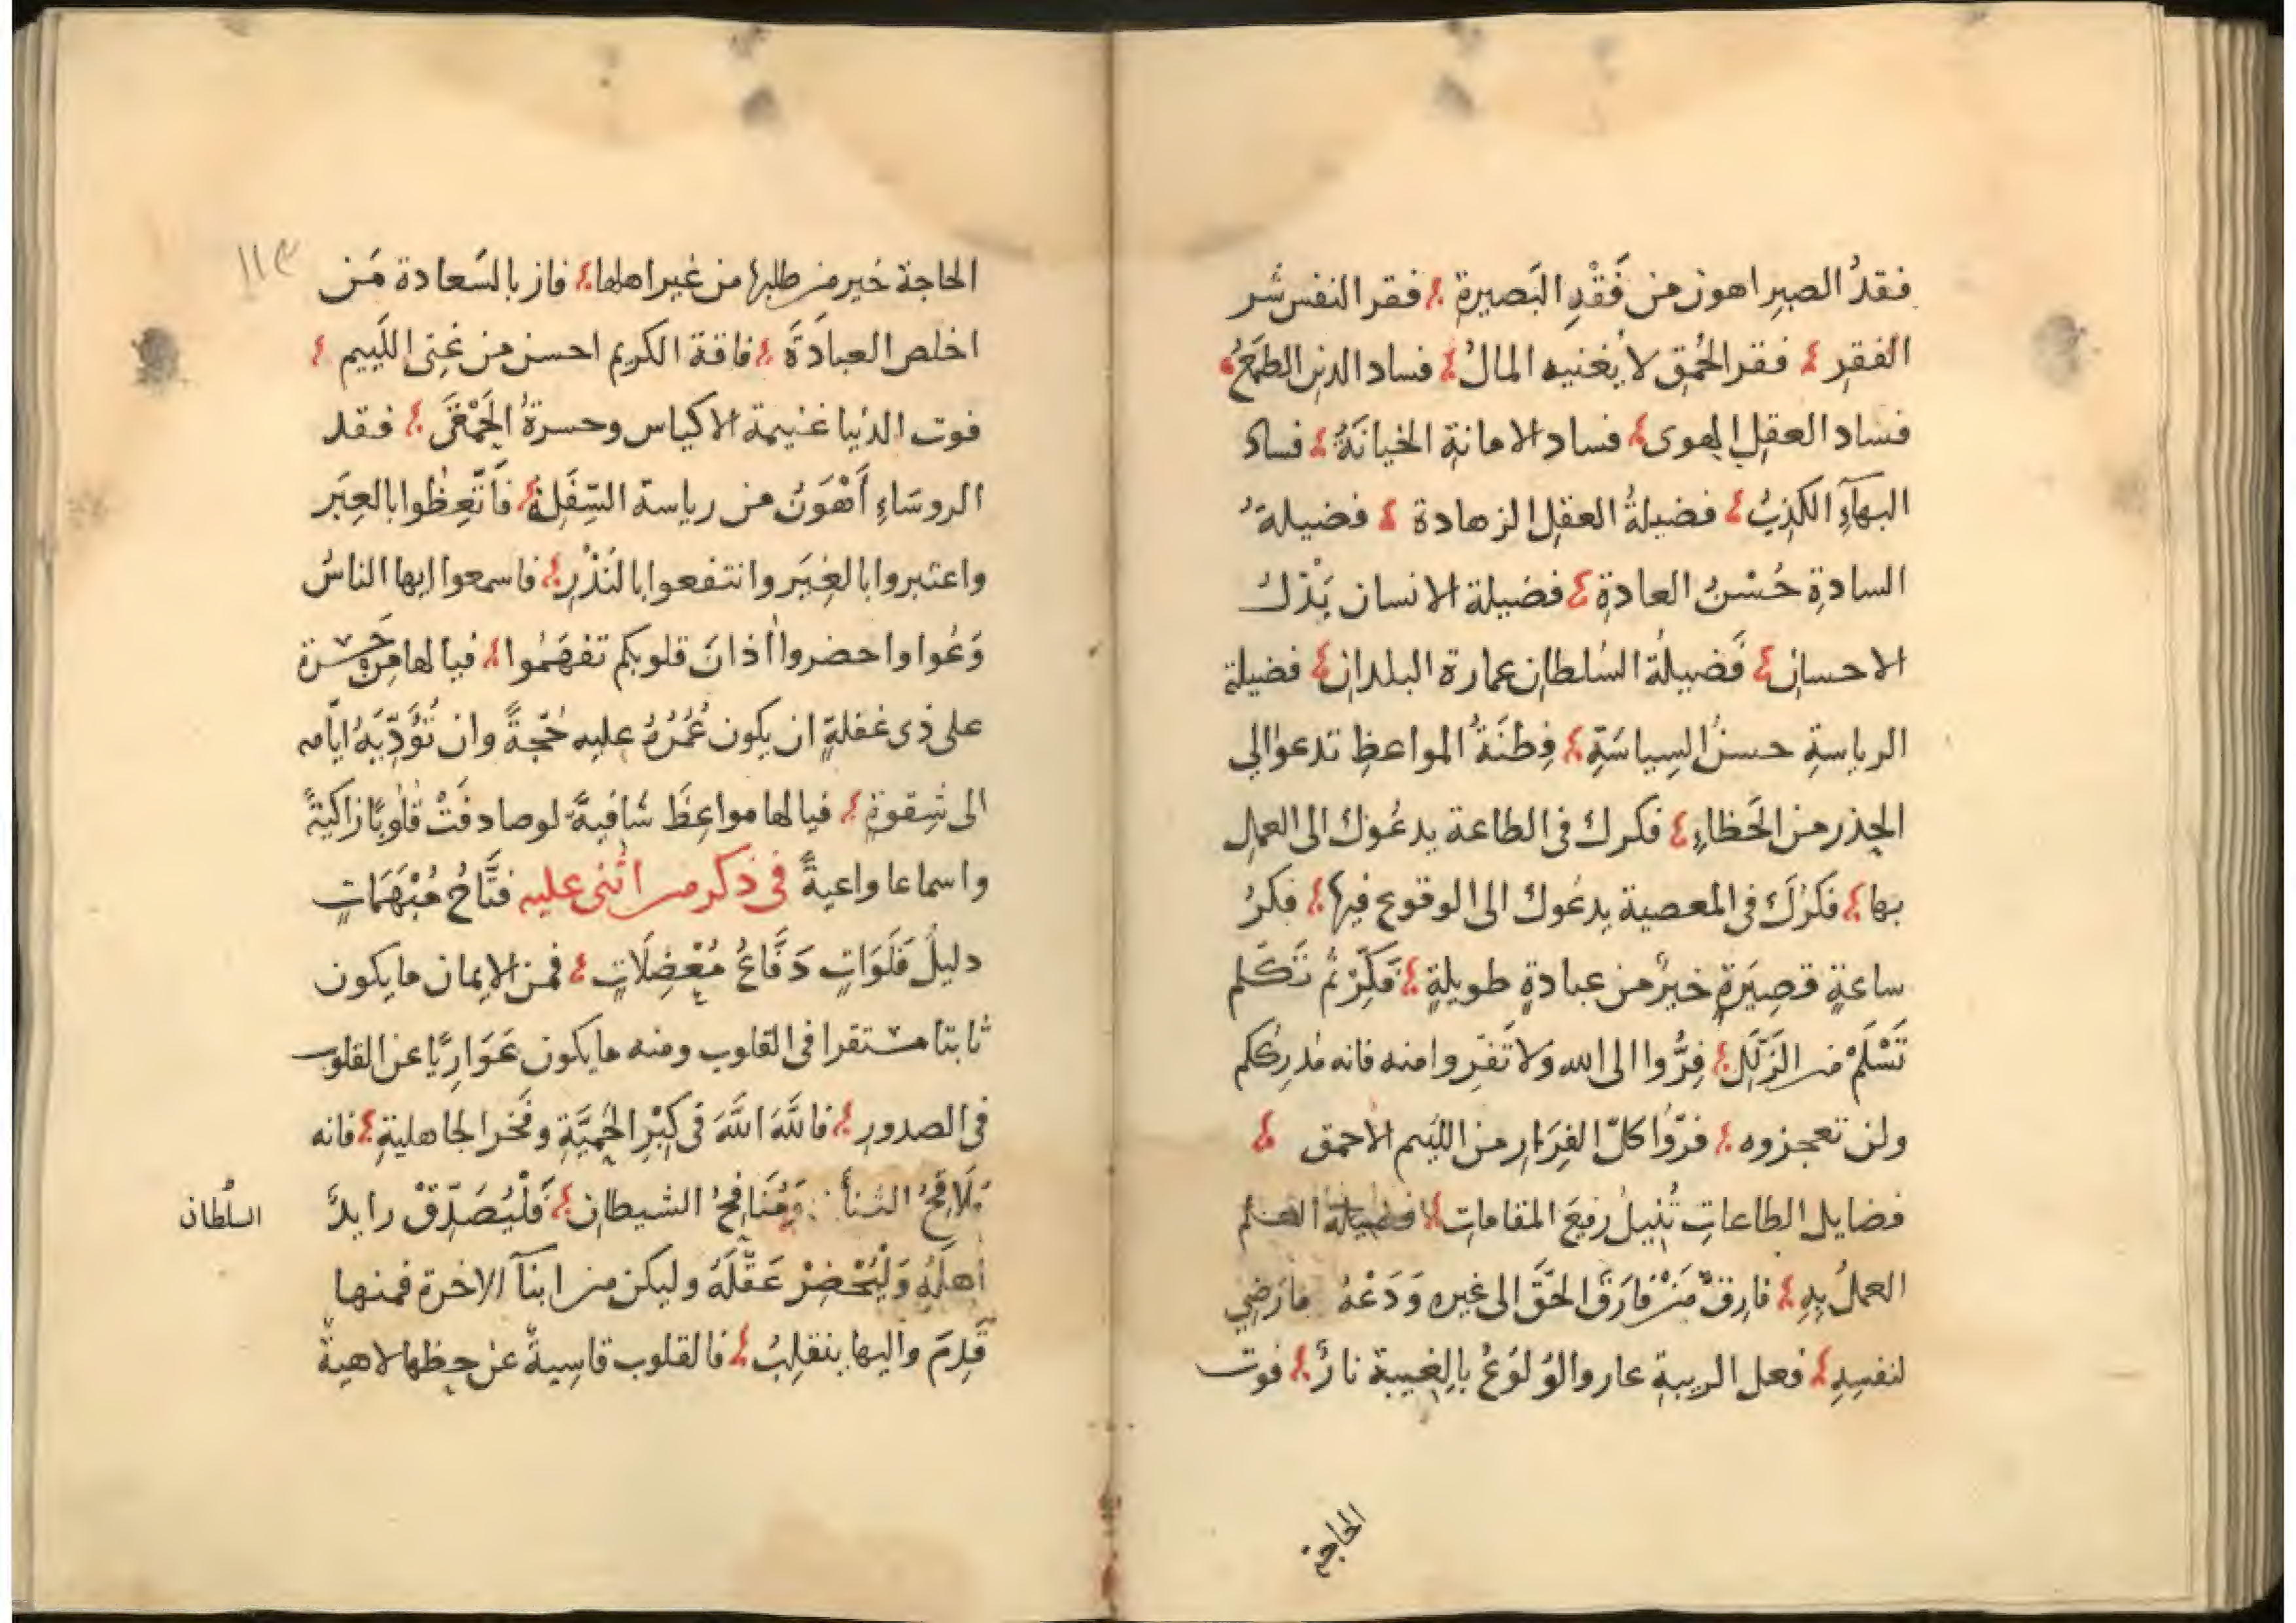 فقدُ الصبرِ اهون من فَقْدِ البَصيرة ؛ فقر النفس شر
الفقرِ ؛ فقر الحُمِق لا يُغنيه المالُ ؛ فساد الدين الطمَعُ ؛
فساد العقلِ الهوى ؛ فساد الامانةِ الخيانَةُ ؛ فساد
البهآءِ الكَذِبُ ؛ فضيلةُ العقلِ الزهادة ؛ فضيلةُ
السادةِ حُسْنُ العادةِ ؛ فضيلة الانسان بَذْلُ
الاحسانِ ؛ فَضيلةُ السُلطانِ عمارة البلدانِ ؛ فضيلة
الرياسةِ حسنُ السِياسَةِ ؛ فِطنَةُ المواعظِ تدعوا الي
الحِذر من الخَطاءِ ؛ فكرك فى الطاعة يدعُوك الى العملِ
بها ؛ فكرُكَ فى المعصية يدعُوك الى الوقوع فيها ؛ فكرُ
ساعةٍ قصِيَرةٍ خيرٌ من عبادةٍ طويلةٍ ؛ فَكِّرْ ثُم تَكَلم
تَسْلَمْ من الزَلَلِ ؛ فِرُّوا الى الله ولا تَفرِوا منه فانه مُدرِككم
ولن تعجزوه ؛ فرّوا كلّ الفِرَارِ من اللئيم الاحمق ؛
فضايل الطاعاتِ تُنِيلُ رفيعَ المقاماتِ ؛ فضيلة العلم
العملُ بِهِ ؛ فارِقْ مَنْ فارَقَ الحَقَّ الى غيره وَدَعْهُ مارَضِي
لنفسِهِ ؛ فعل الريبةِ عار والوُلوَعُ بالِغيبة نارٌ ؛ فوت
الحاجة
١١٣
الحاجة خَير من طلبها من غير اهلها ؛ فاز بالسَعادة مَن
اخلص العبادَةَ ؛ فاقة الكريم احسن من غِنى اللَييم ؛
فوت الدُنيا غنيمة الاكياس وحسرةُ الحَمْقَى ؛ فقد
الروسَاءِ أَهْوَنُ من رياسة السِّفَلِة ؛ فَاتَّعِظُوا بالعِبَر
واعتبروا بالغِيَر وانتفعوا بالنُذُرِ ؛ فاسمعوا ايها الناسُ
وَعُوا واحضروا اذانَ قلوبكم تفهَمُوا ؛ فيالها مِن حَسرة
على ذى غفلةٍ ان يكون عُمُرُهُ عليه حُجّةً وان تُؤَدِّيَهُ ايّامه
الى شِقوةٍ ؛ فيالها مواعِظَ شافيةً لو صادفَتْ قُلوبًا زاكيَةً
واسماعا واعيةً فى ذكر من اثنى عليه فتَّاحُ مُبْهَمَاتٍ
دليلُ فَلَوَاتٍ دَفَّاعُ مُعْضِلَاتٍ ؛ فمن الايمان ما يكون
ثابتا مستقرا فى القلوب ومنه ما يكون عَوَارِيًّا عن القلوب
فى الصدورِ ؛ فاللَّهَ اللَّهَ فى كِبْرِ الحَمِيَّةِ وفَخر الجاهليةِ ؛ فانه
مَلَاقِحُ الشنأ وَمَنَافِحُ الشيطانِ ؛ فَلْيُصَدِّقْ رايدٌ
السُلطان
أهلَهُ وَلْيُحْضِرْ عَقْلَهُ وليكن من ابنآ الاخرة فمنها
قَدِمَ واليها ينقلِبُ ؛ فالقلوب قاسِيةٌ عن حظها لاهيةٌ